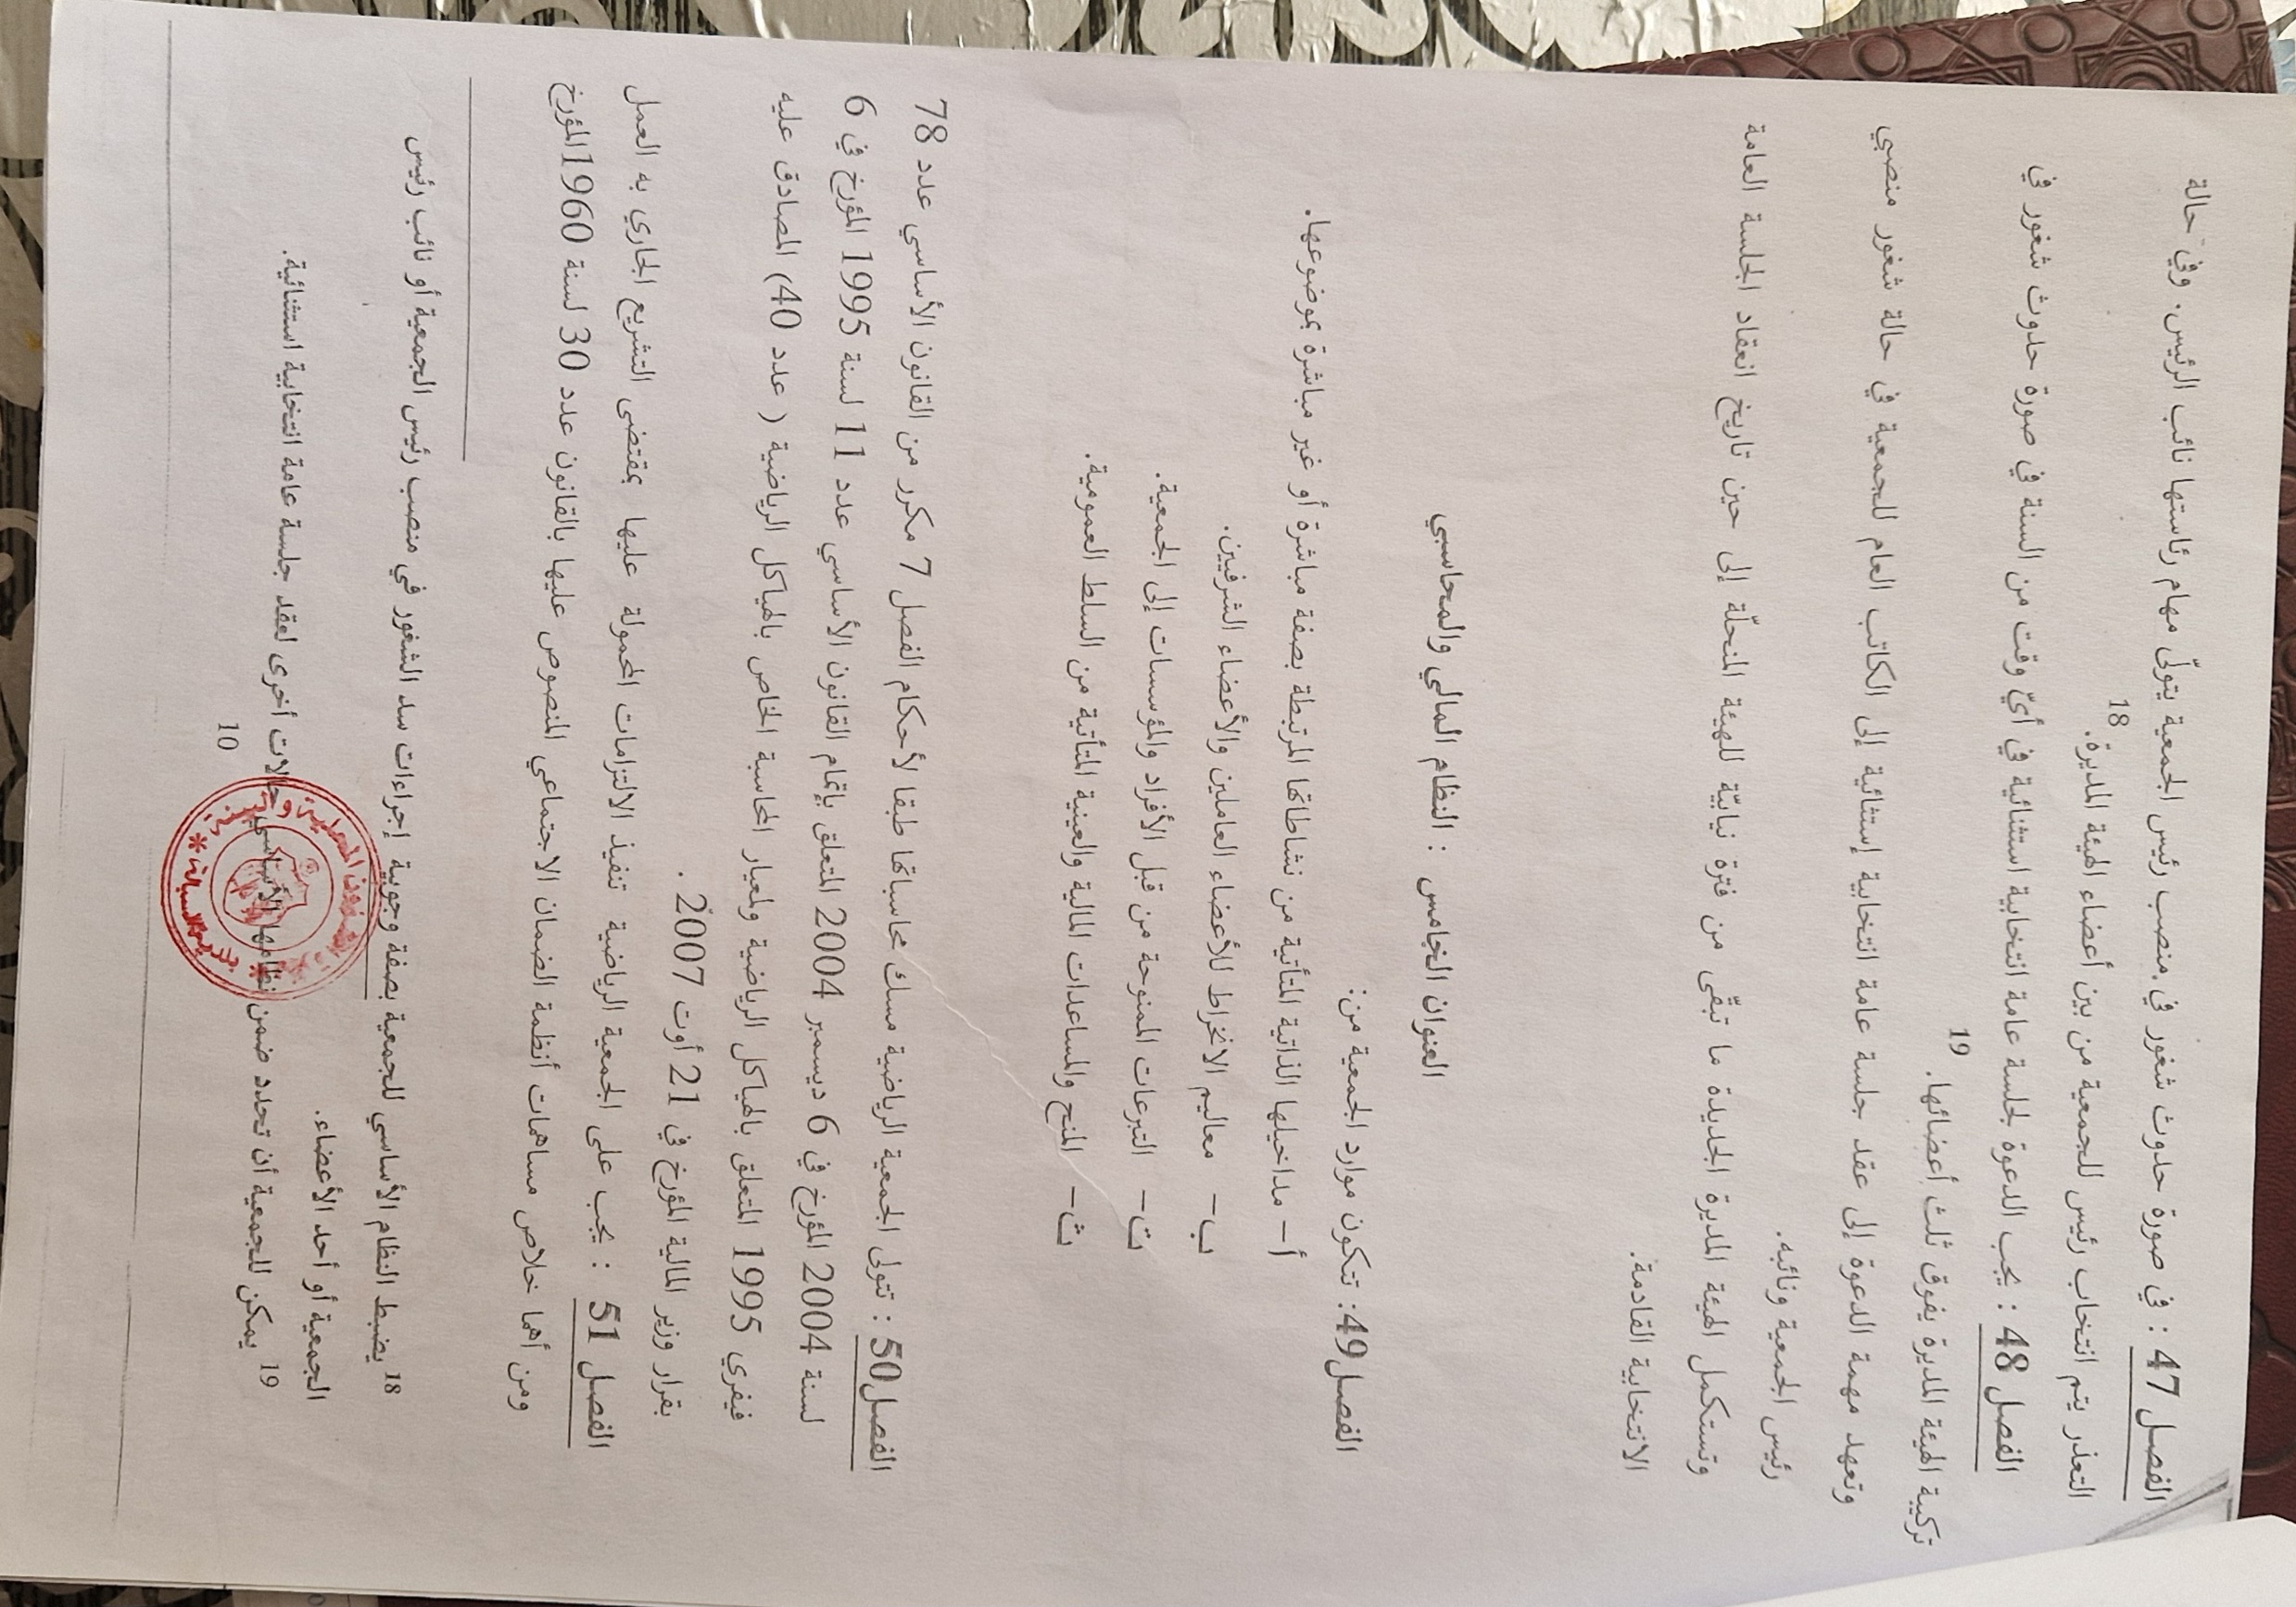 الفصل 47 : في صورة حدوث شغور في منصب رئيس الجمعية يتولّى مهام رئاستها نائب الرئيس. وفي حالة
التعذر يتم انتخاب رئيس للجمعية من بين أعضاء الهيئة المديرة. 18
الفصل 48 : يجب الدعوة لجلسة عامة انتخابية استثنائية في أيّ وقت من السنة في صورة حدوث شغور في
تركيبة الهيئة المديرة يفوق ثلث أعضائها. 19
وتعهد مهمة الدعوة إلى عقد جلسة عامة انتخابية إستثنائية إلى الكاتب العام للجمعية في حالة شغور منصبي
رئيس الجمعية ونائبه.
وتستكمل الهيئة المديرة الجديدة ما تبقّى من فترة نيابيّة للهيئة المنحلّة إلى حين تاريخ انعقاد الجلسة العامة
الانتخابية القادمة.
العنوان الخامس : النظام المالي والمحاسبي
الفصل49: تتكون موارد الجمعية من:
أ- مداخيلها الذاتية المتأتية من نشاطاتها المرتبطة بصفة مباشرة أو غير مباشرة بموضوعها.
ب- معاليم الانخراط للأعضاء العاملين والأعضاء الشرفيين.
ت- التبرعات الممنوحة من قبل الأفراد والمؤسسات إلى الجمعية.
ث- المنح والمساعدات المالية والعينية المتأتية من السلط العمومية.
الفصل50 : تتولى الجمعية الرياضية مسك محاسباتها طبقا لأحكام الفصل 7 مكرر من القانون الأساسي عدد 78
لسنة 2004 المؤرخ في 6 ديسمبر 2004 المتعلق بإتمام القانون الأساسي عدد 11 لسنة 1995 المؤرخ في 6
فيفري 1995 المتعلق بالهياكل الرياضية ولمعيار المحاسبة الخاص بالهياكل الرياضية ( عدد 40) المصادق عليه
بقرار وزير المالية المؤرخ في 21 أوت 2007 .
الفصل 51 : يجب على الجمعية الرياضية تنفيذ الالتزامات المحمولة عليها بمقتضى التشريع الجاري به العمل
ومن أهما خلاص مساهمات أنظمة الضمان الاجتماعي المنصوص عليها بالقانون عدد 30 لسنة 1960المؤرخ
18 يضبط النظام الأساسي للجمعية بصفة وجوبية إجراءات سد الشغور في منصب رئيس الجمعية أو نائب رئيس
الجمعية أو أحد الأعضاء.
19 يمكن للجمعية أن تحدد ضمن نظامها الأساسي حالات أخرى لعقد جلسة عامة انتخابية استثنائية.
10